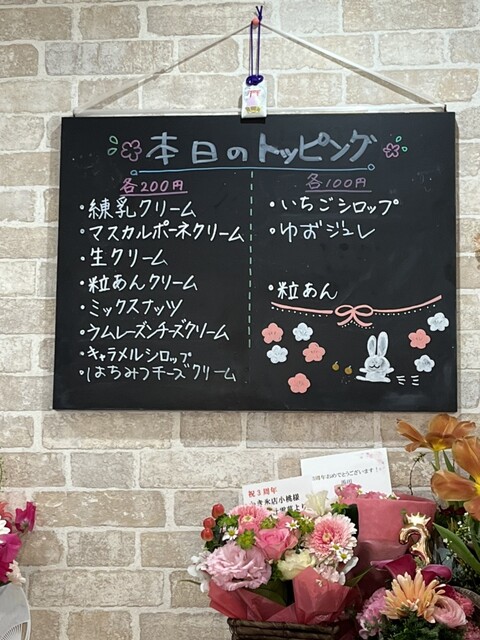 本日のトッピング
各200円
・練乳クリーム
・マスカルポーネクリーム
・生クリーム
・粒あんクリーム
・ミックスナッツ
・ラムレーズンチーズクリーム
・キャラメルシロップ
・はちみつチーズクリーム
各100円
・いちごシロップ
・ゆずジュレ
・粒あん
祝3周年
かき氷店小桃様
3周年おめでとうございます!
3